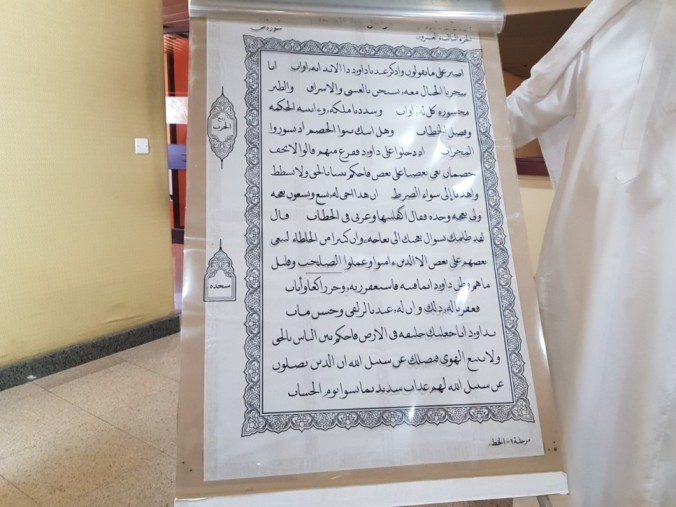 الجزء الثالث والعشرون
سورة ص
اصبر على ما يقولون واذكر عبدنا داود ذا الايد انه اواب انا
سخرنا الجبال معه يسبحن بالعشي والاشراق والطير
محشورة كل له اواب وشددنا ملكه وءاتينه الحكمة
وفصل الخطاب وهل اتىك نبوا الخصم اذ تسوروا
المحراب اذ دخلوا على داود ففزع منهم قالوا لا تخف
خصمان بغى بعضنا على بعض فاحكم بيننا بالحق ولا تشطط
واهدنا إلى سواء الصرط ان هذا اخي له تسع وتسعون نعجة
ولي نعجة وحدة فقال اكفلنيها وعزني في الخطاب قال
لقد ظلمك بسؤال نعجتك الى نعاجه وان كثيرا من الخلطاء ليبغي
بعضهم على بعض الا الذين ءامنوا وعملوا الصلحت وقليل
ما هم وظن داود انما فتنه فاستغفر ربه وخر راكعا واناب
فغفرنا له ذلك وان له عندنا لزلفى وحسن ماب
يداود انا جعلنك خليفة في الارض فاحكم بين الناس بالحق
ولا تتبع الهوى فيضلك عن سبيل الله ان الذين يضلون
عن سبيل الله لهم عذاب شديد بما نسوا يوم الحساب
ربع
الحزب
سجدة
مرحلة ١- الخط.